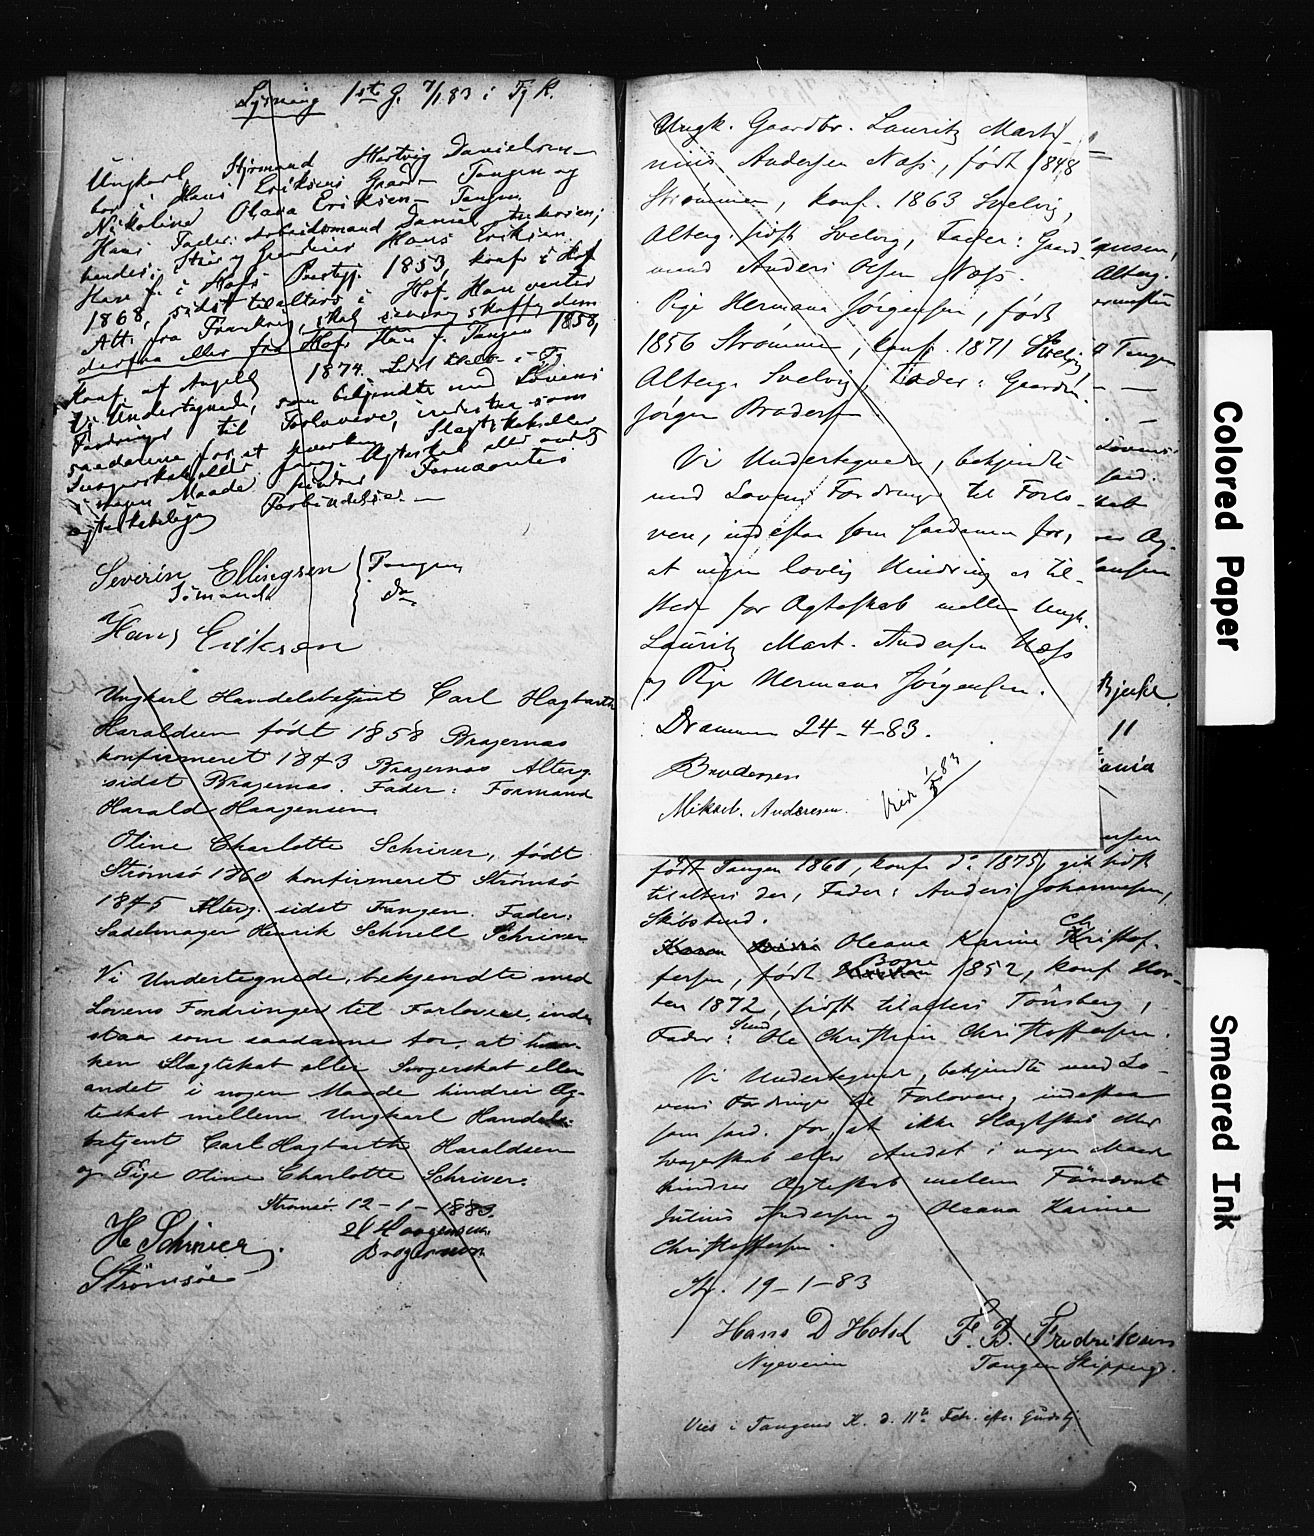 Lysning 1ste G. 7/1 83 i Tg K.
Ungkarl Styrmand Hartvig Danielsen
bor i Hans Eriksens Gaard Tangen og
Nikoline Olava Eriksen Tangen
Hans Fader: Arbeidsmand Daniel Andersen;
hendes: Hans Eriksen
Han f. i Hofs Præstegj. 1853, konf. i Hof
1868, sidst tilalters i Hof. Han venter
Att. fra Frankrig, skal skaffe dem
derfra eller fra Hof. f. Tangen 1858,
Konf. af 1874. Sidst tilalt. i Tg
Vi Undertegnede, som bekjendte med Lovens
Fordringer til Forlovere, indestaa som
saadanne for, at hverken Slægtskab eller
Svogerskab eller
nogen Maade hindrer
ægteskabelige Forbindelse.
Severin Ellingsen Tangen
Sømand do
Hans Eriksen
Ungkarl Handelsbetjent Carl Hagbarth
Haraldsen født 1858 Bragernæs
konfirmeret 1873 Bragernæs Alterg.
sidst Bragernæs. Fader: Formand
Harald Haagensen
Oline Charlotte Schriver, født
Strømsø 1860 konfirmeret Strømsø
1875 Alterg. sidst Tangen. Fader:
Sadelmager Henrik Schnell Schriver
Vi Undertegnede, bekjendte med
Lovens Fordringer til Forlovere, inde
staa som saadanne for, at hver-
ken Slægtskab eller Svogerskab eller
andet i nogen Maade hindrer Æg-
teskab mellem Ungkarl Handels-
betjent Carl Hagbarth Haraldsen
og Pige Oline Charlotte Schriver.
Strømsø 12-1-1883
H Schriver. H Haagensen
Strømsøe Bragernæs
Ungk. Gaardbr. Lauritz Marti-
nius Andersen Næss, født 1848
Strømmen, konf. 1863 Svelvig,
Alterg. sidst Svelvig, Fader: Gaard-
mand Anders Olsen Næss.
Pige Hermana Jørgensen, født
1856 Strømmen, konf. 1871 Svelvig
Alterg. Svelvig, Fader: Gaardm.
Jørgen Brodersen
Vi Undertegnede, bekjendte
med Lovens Fordringer til Forlo-
vere, indestaa som saadanne for,
at ingen lovlig Hindring er til-
stede for Ægteskab mellem Ungk.
Lauritz Mart. Andersen Næss
og Pige Hermana Jørgensen.
Drammen 24-4-83.
Brodersen
Mikael. Andersen.
født Tangen 1860, konf. do 1875, gik sidst
tilalters der, Fader: Anders Johannesen,
Skibstmd.
Oleana Karine Christof-
fersen, født Borre 1852, konf. Hor-
ten 1872, sidst tilalters Tønsberg,
Fader: Smd Ole Christian Christoffersen.
Vi Undertegnede, bekjendte med Lo-
vens Fordringer til Forlovere, indestaa
som saad. for, at ikke Slægtskab eller
Svogerskab eller Andet i nogen Maade
hindrer Ægteskab mellem
Julius Andersen og Oleana Karine
Christoffersen.
Str. 19-1-83
Hans D Holst F. B. Fredriksen
Nyeveien Tangen Skipperg.
Viet i Tangens K. d. 11te Febr. efter Gudstj.
Colored Paper
Smeared Ink